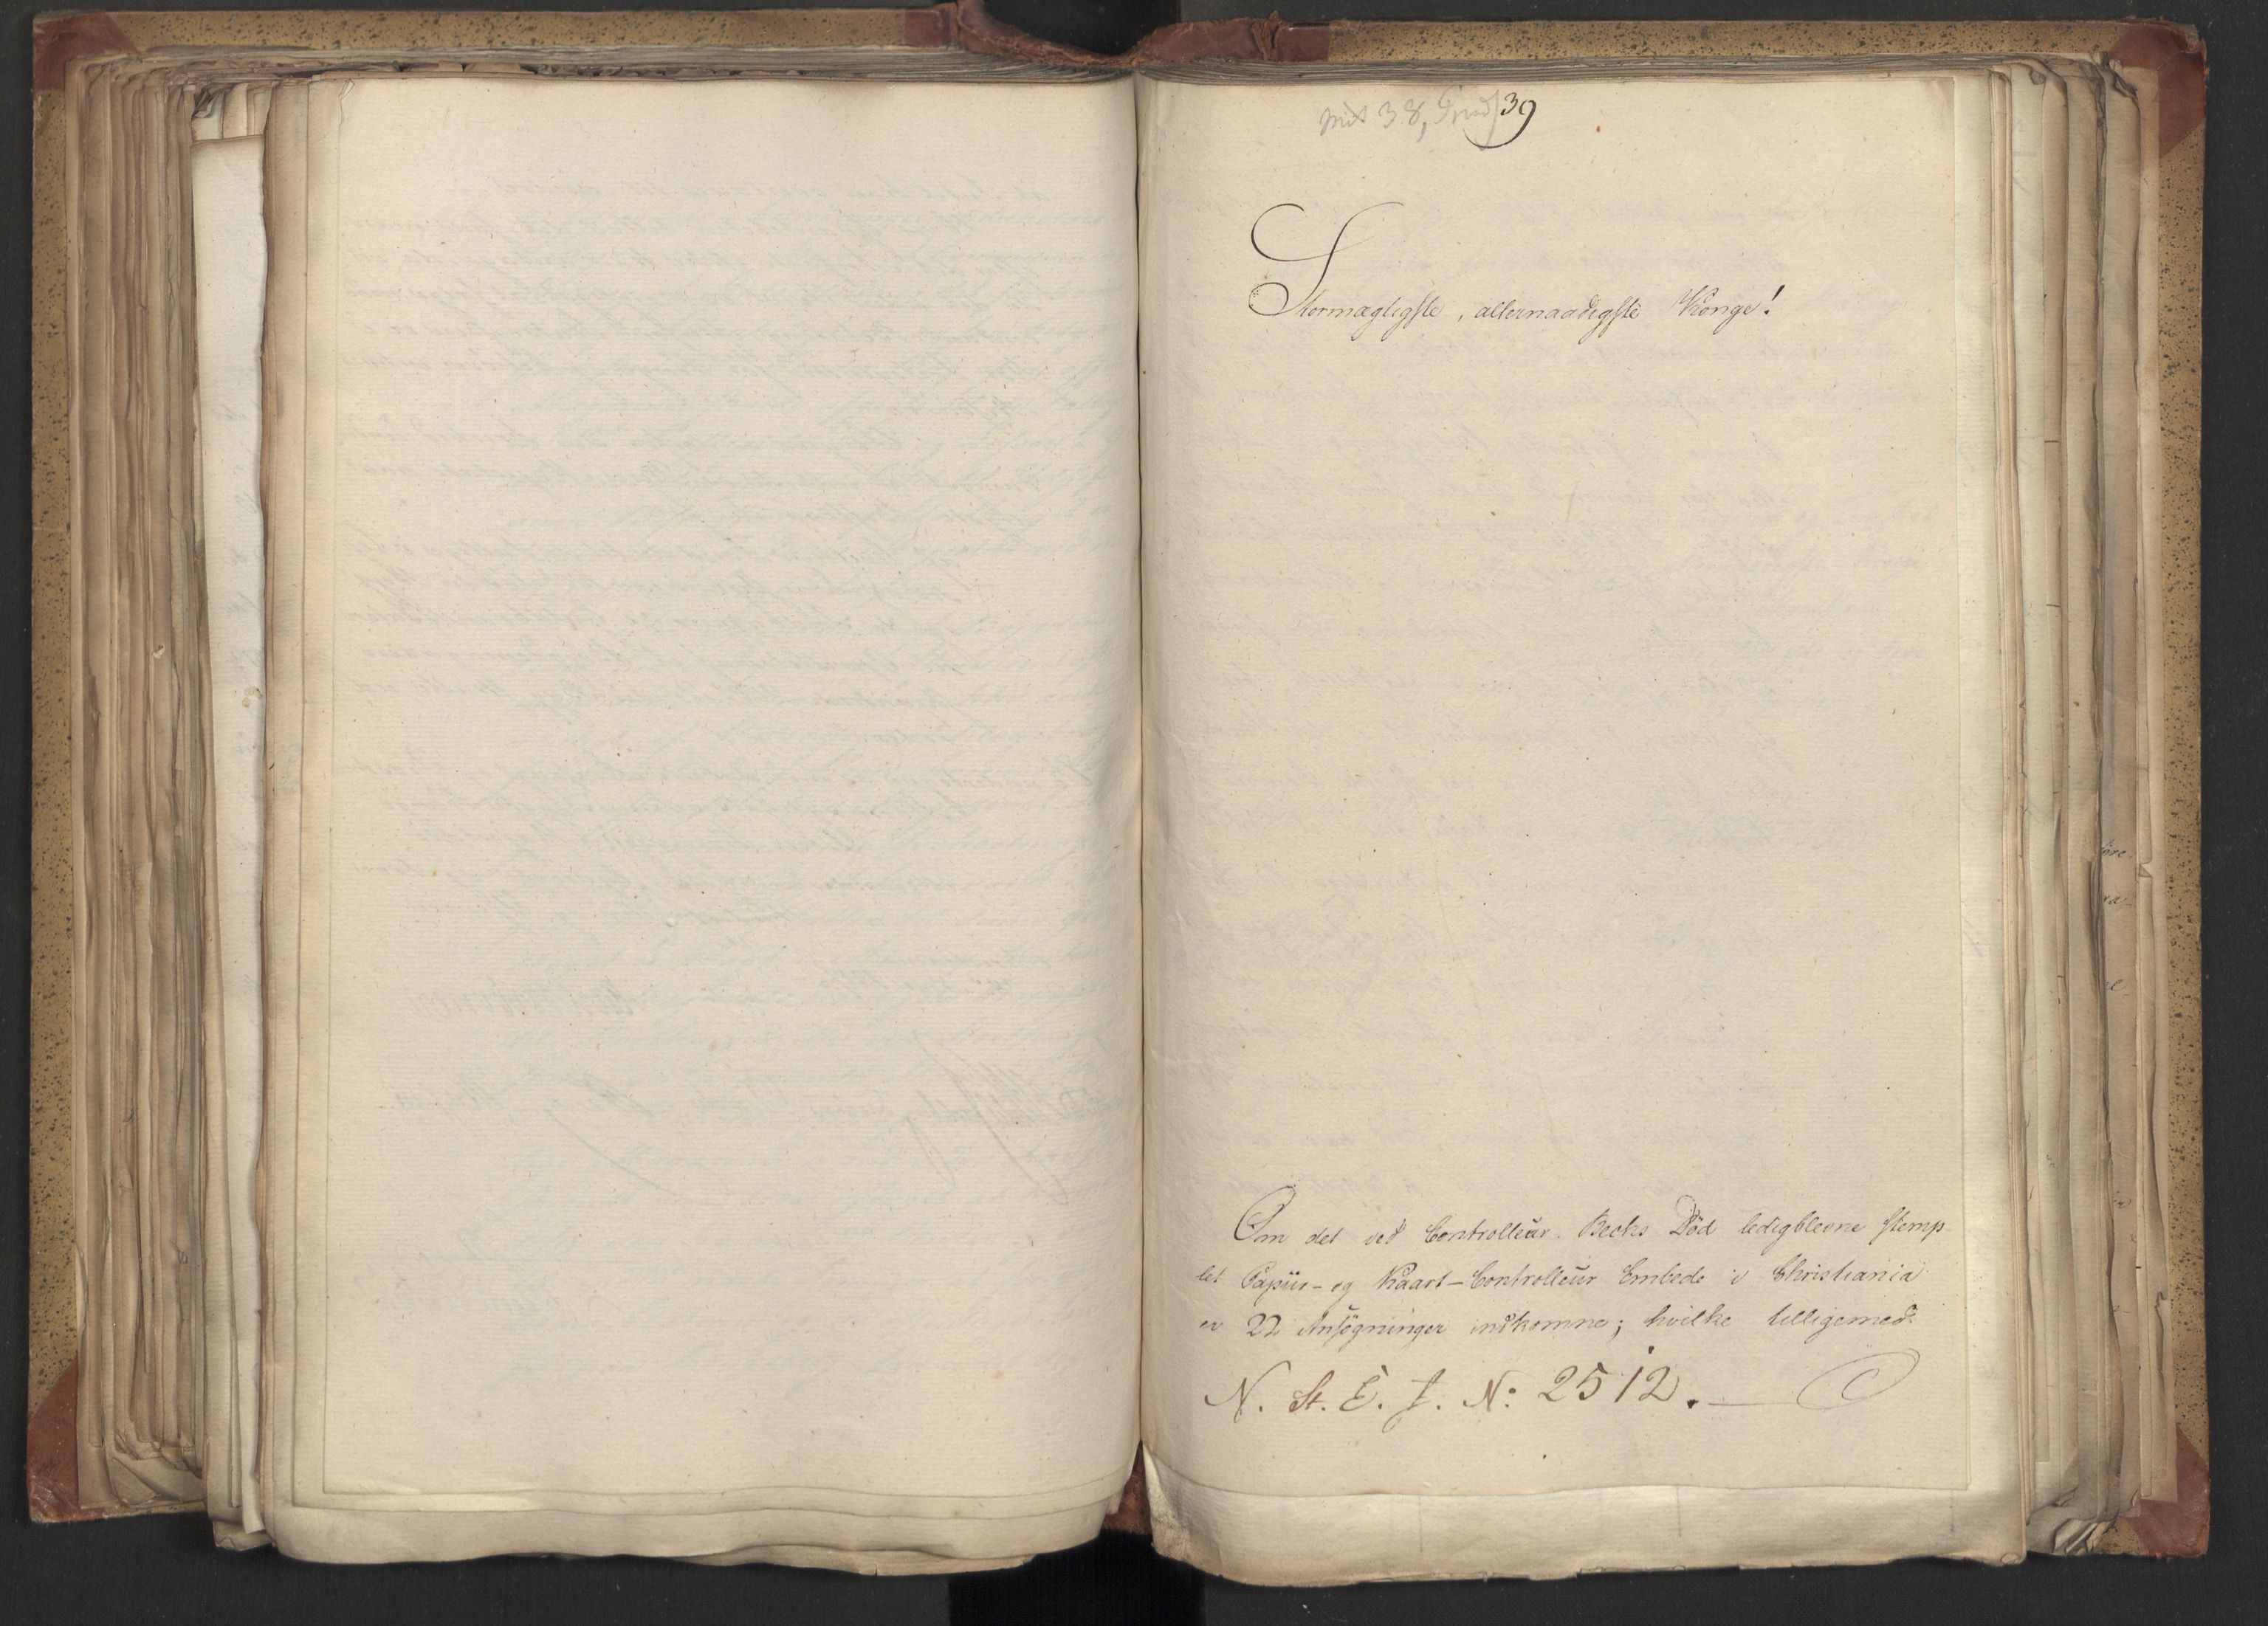 39
Stormægtigste, allernaadigste Konge!
Om det ved Controlleur Becks Död ledigblevne stemp-
let Papiir- og Kaart-Controlleur Embede i Christiania
er 22 Ansögninger indkomne; hvilke tilligemed
N. St. E. J. N: 2512.